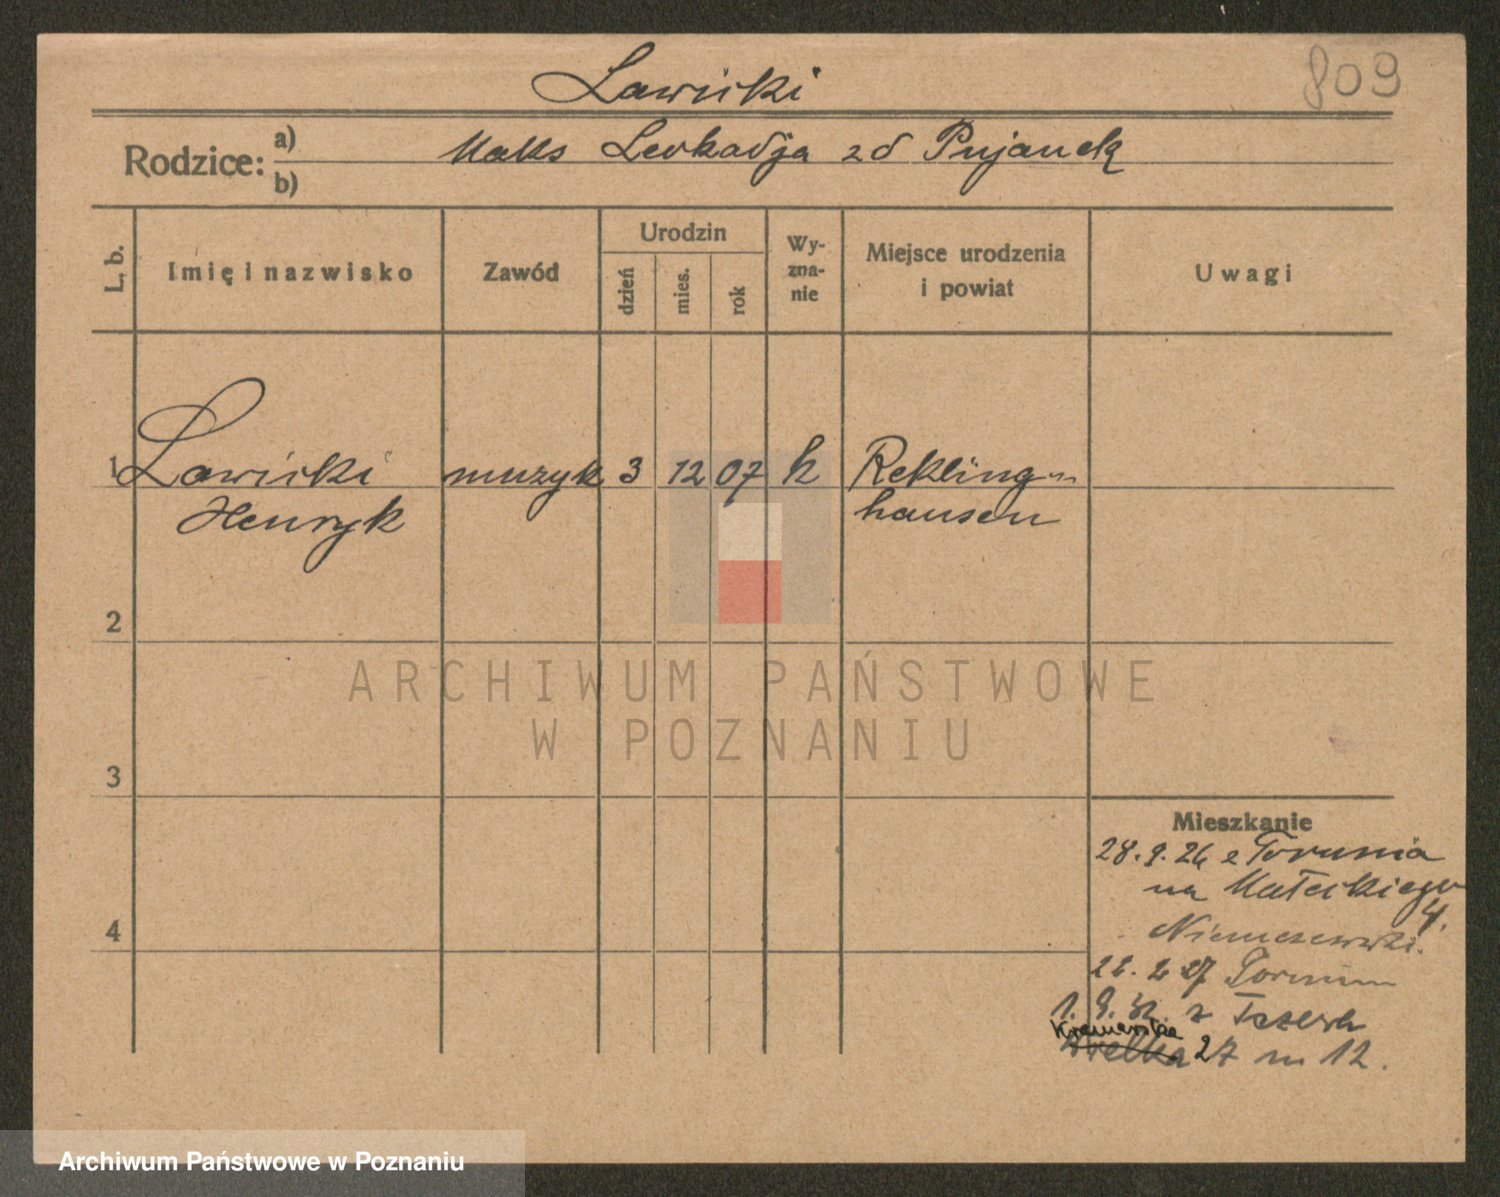 Ławicki
809
Rodzice: a) b)
Maks Leokadja zd Pujanek
L. b.
Imię i nazwisko
Zawód
Urodzin
dzień
mies.
rok
Wy-
zna-
nie
Miejsce urodzenia
i powiat
Uwagi
1 Ławicki muzyk 3 12 07 k Rekling-
Henryk hausen
2
3
4
Mieszkanie
28.9.26 z Torunia
na Małeckiego
4.
Niemczewski.
2 27 Toruń
1. 9. 32. z Tczewa
Kramarska
Wielka 27 m 12.
ARCHIWUM PAŃSTWOWE
W POZNANIU
Archiwum Państwowe w Poznaniu